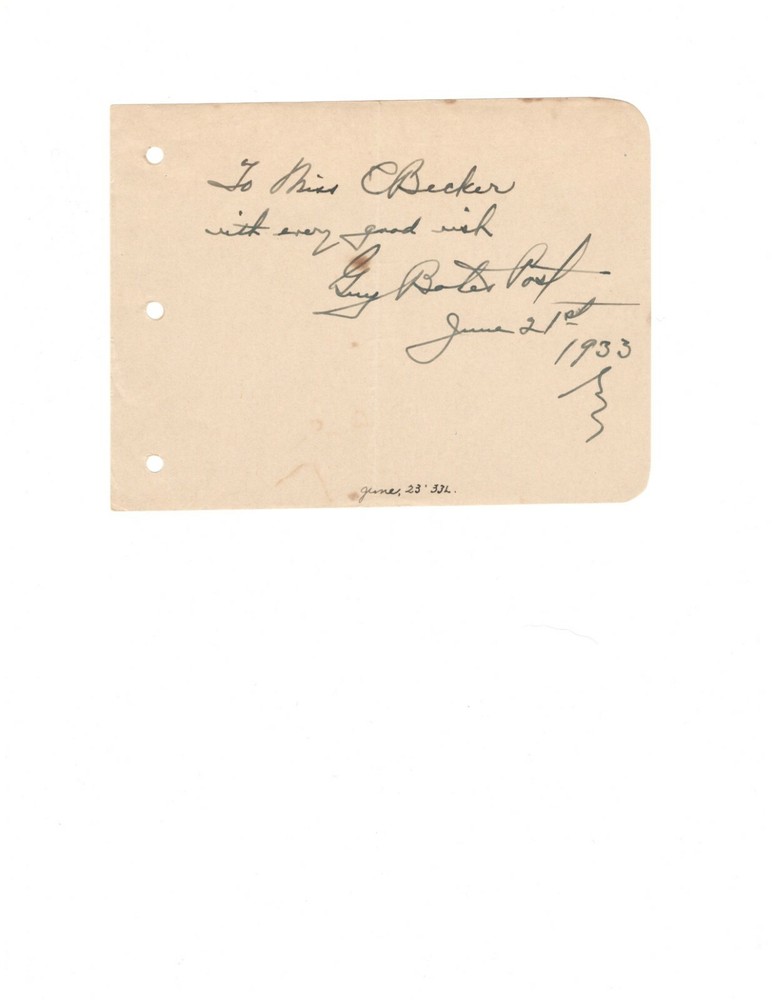 To Miss C Becker
with every good wish
Guy Bates Post
June 21st
1933
June, 23' 33